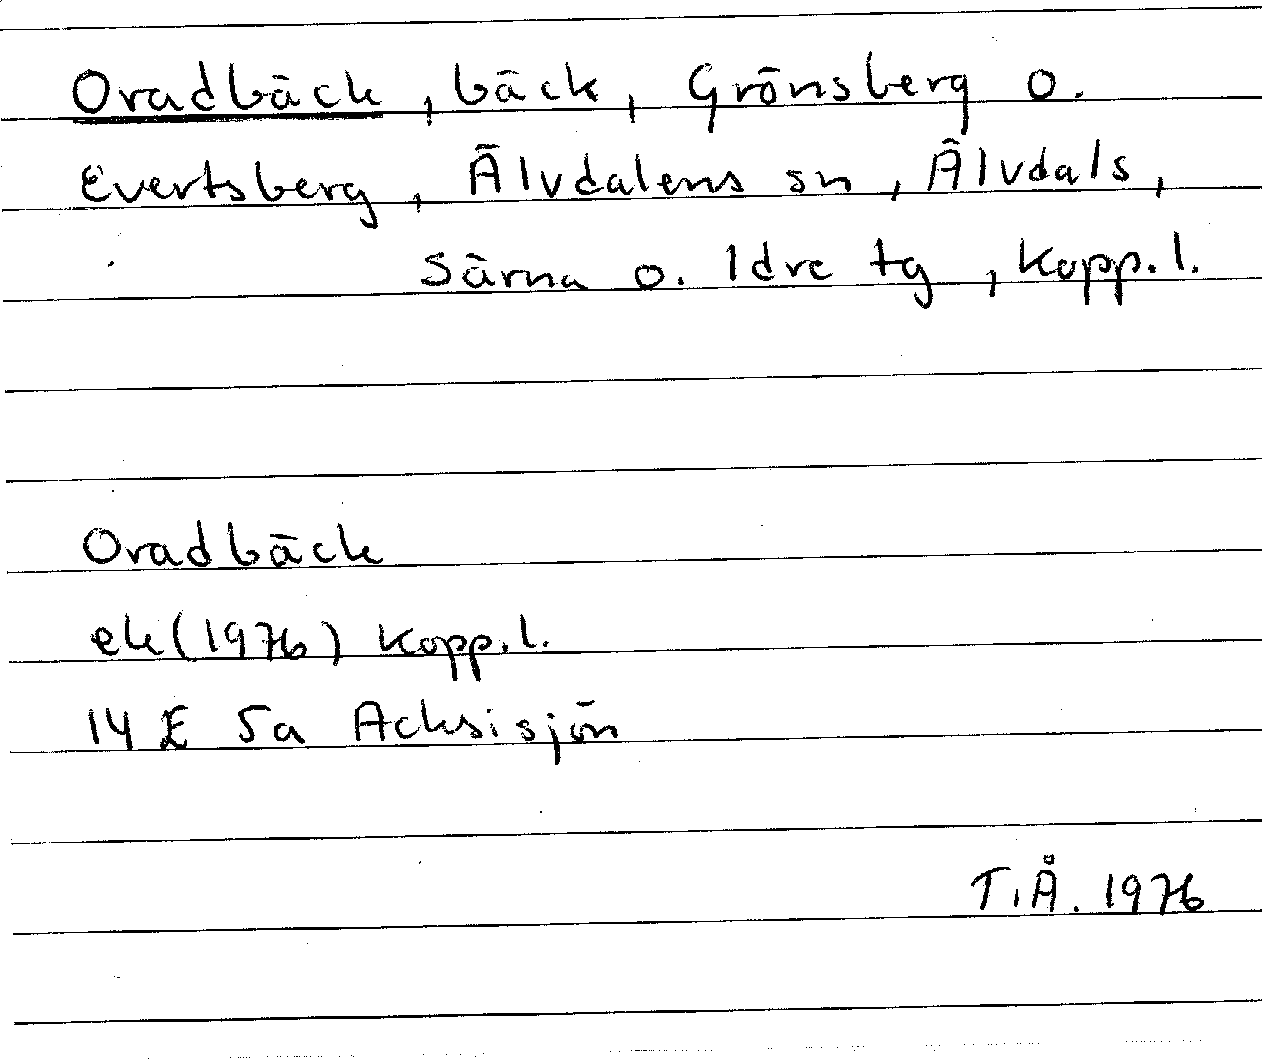 Oradbäck, bäck, Grönsberg o.
Evertsberg, Älvdalens sn, Älvdals,
Särna o. Idre tg, Kopp. l.
Oradbäck
ek (1976) Kopp. l.
14 E 5a Acksisjön
T. Å. 1976